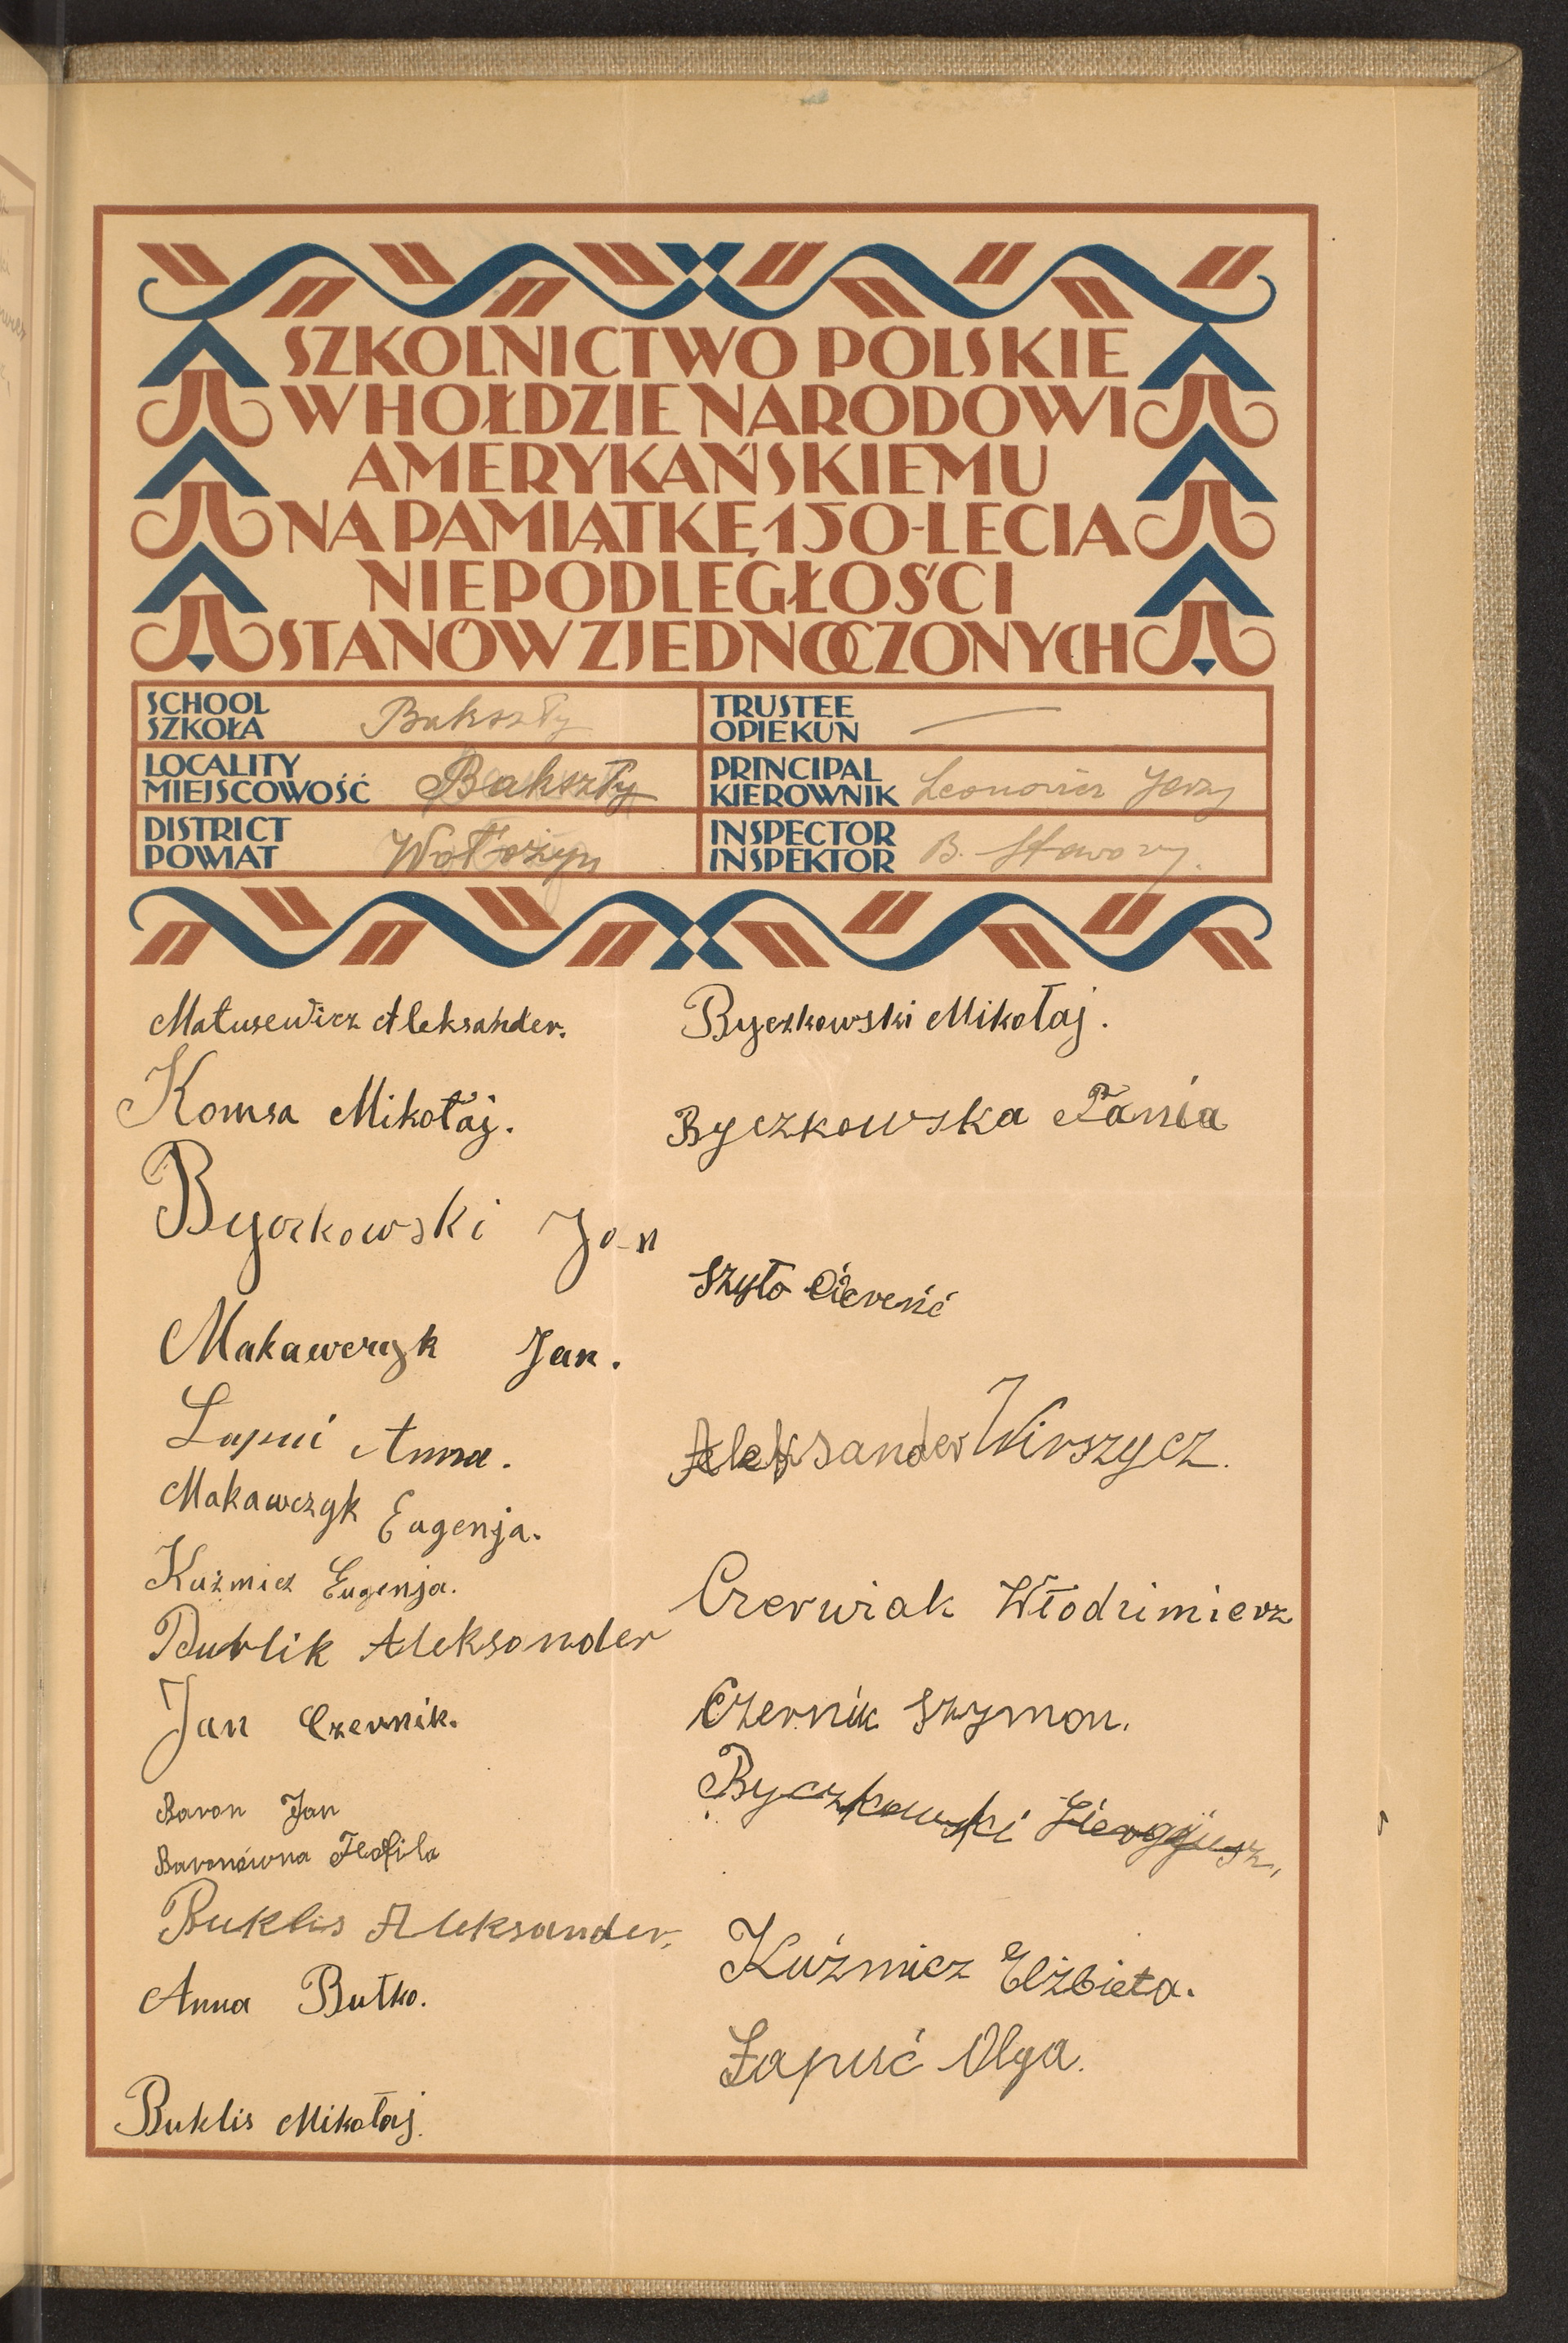 SZKOLNICTWO POLSKIE
W HOŁDZIE NARODOWI
AMERYKAŃSKIEMU
NA PAMIĄTKĘ 150-LECIA
NIEPODLEGŁOŚCI
STANÓW ZJEDNOCZONYCH
SCHOOL
SZKOŁA
Bakszty
TRUSTEE
OPIEKUN
LOCALITY
MIEJSCOWOŚĆ
Bakszty
PRINCIPAL
KIEROWNIK
Leonowicz Jerzy
DISTRICT
POWIAT
Wołożyn
INSPECTOR
INSPEKTOR
B.
Matusewicz Aleksander.
Komsa Mikołaj.
Byczkowski Jan
Makawczyk Jan.
Anna.
Makawczyk Eugenja.
Kuźmicz Eugenja.
Bublik Aleksander
Jan Czernik.
Baron Jan
Baronówna Teofila
Buklis Aleksander.
Anna Butko.
Buklis Mikołaj.
Byczkowski Mikołaj.
Byczkowska Tania
Szyło
Aleksander Wirszycz.
Czerwiak Włodzimierz
Czernik Szymon.
Byczkowski
Kuźmicz Elżbieta.
Łapuć Olga.